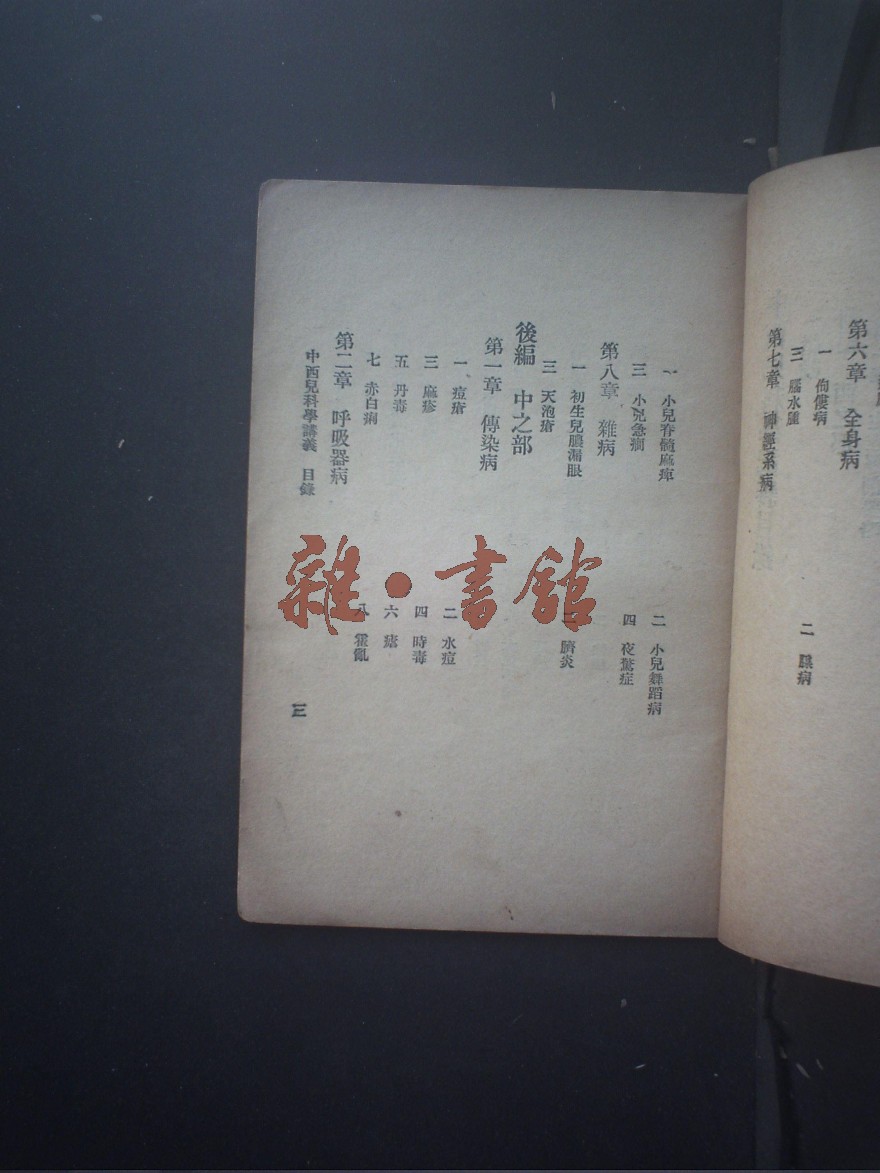 第六章 全身病
一 佝僂病
二 腺病
三 腦水腫
第七章 神經系病
一 小兒脊髓麻痺
二 小兒舞蹈病
三 小兒急癇
四 夜驚症
第八章 雜病
一 初生兒膿漏眼
二 臍炎
三 天泡瘡
後編 中之部
第一章 傳染病
一 痘瘡
二 水痘
三 麻疹
四 時毒
五 丹毒
六 瘧
七 赤白痢
八 霍亂
第二章 呼吸器病
中西兒科學講義 目錄
三
雜•書館